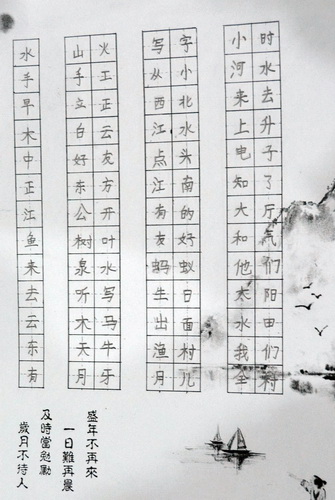 水 山火 写字 小时
手 手王 从小 河水
早 立正 西北 来去
木 白云 江水 上升
中 好友 点头 电子
正 东方 江南 知了
江 公开 有的 大厅
鱼 树叶 友好 和气
来 泉水 蚂蚁 他们
去 听写 生日 太阳
云 木马 出面 水田
东 天牛 渔村 我们
有 月牙 月儿 全村
盛年不再來
一日難再晨
及時當勉勵
歲月不待人